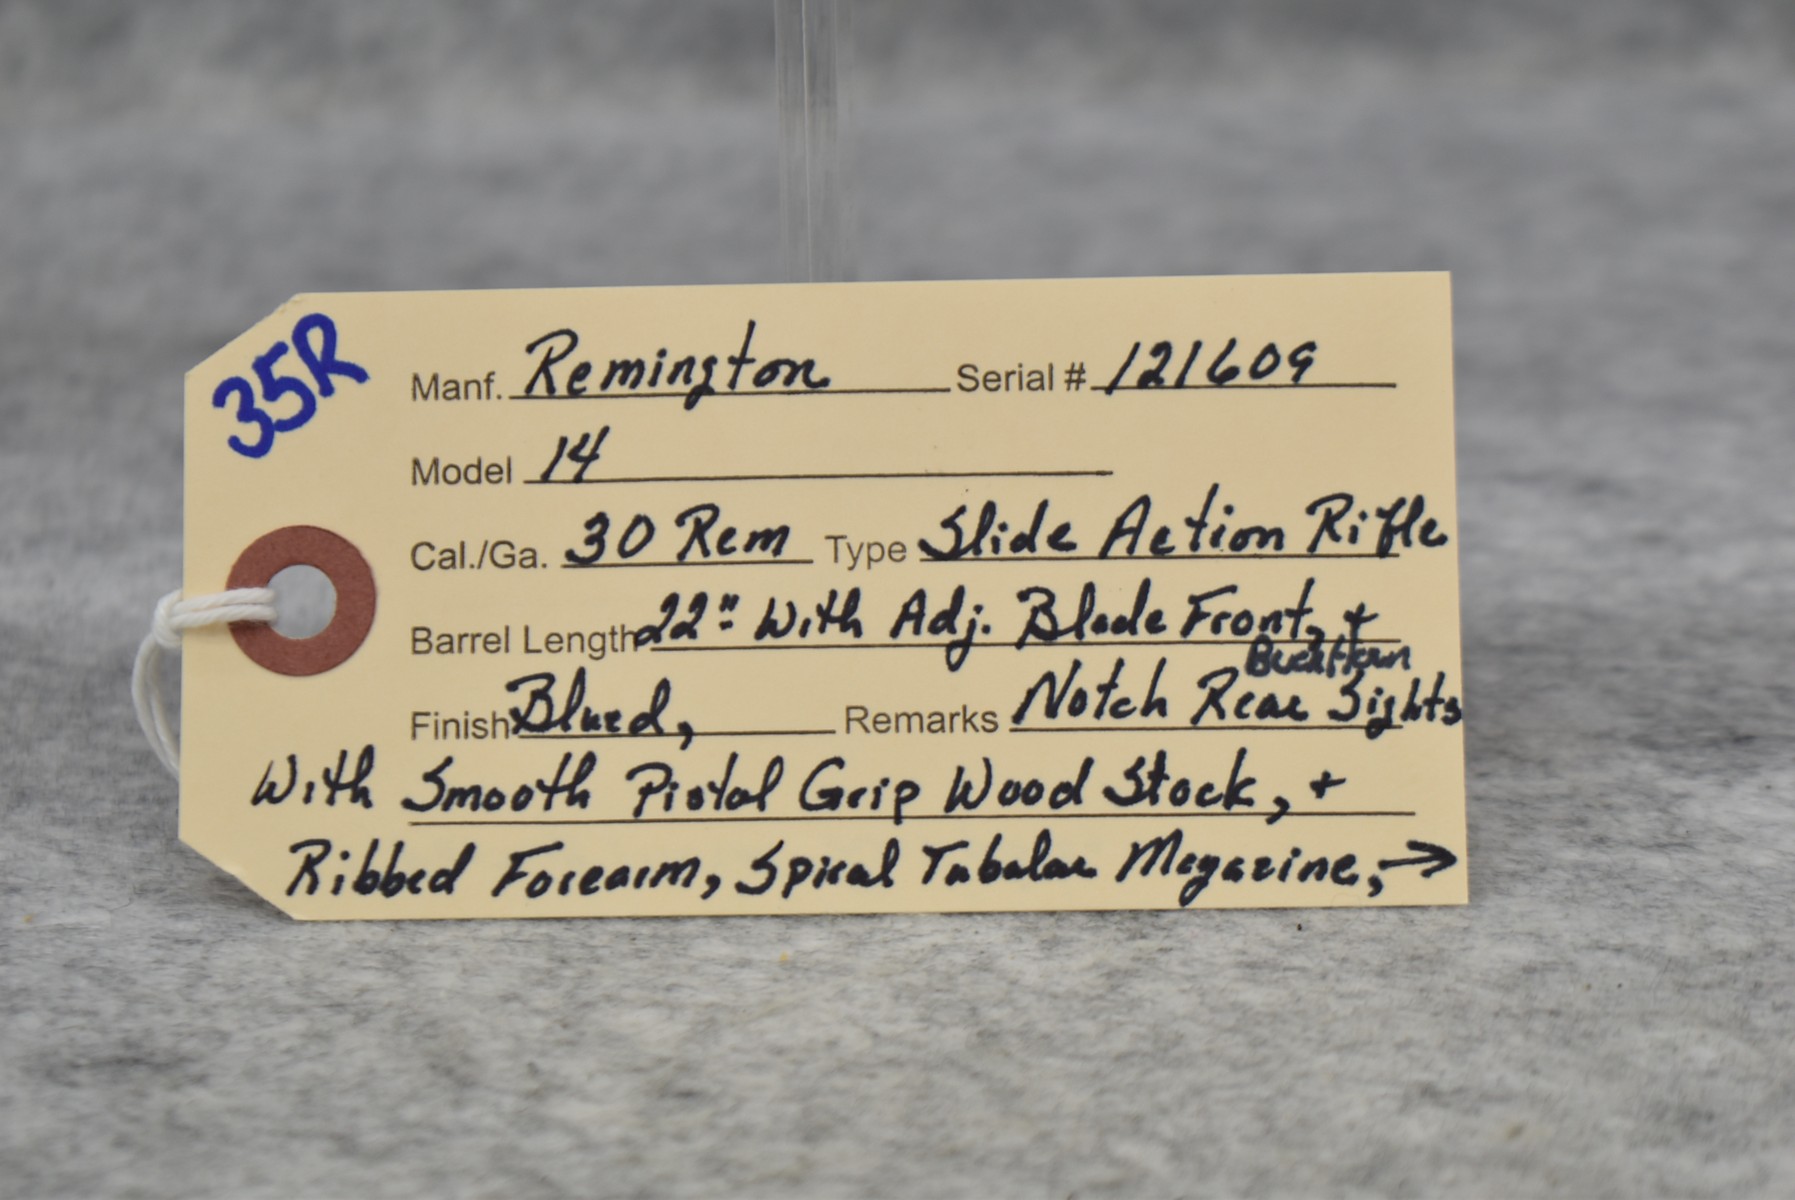 35R
Manf. Remington Serial # 121609
Model 14
Cal./Ga. 30 Rem Type Slide Action Rifle
Barrel Length 22" With Adj. Blade Front, +
BuckHorn
Finish Blued, Remarks Notch Rear Sights
With Smooth Pistol Grip Wood Stock, +
Ribbed Forearm, Spiral Tubular Magazine, →